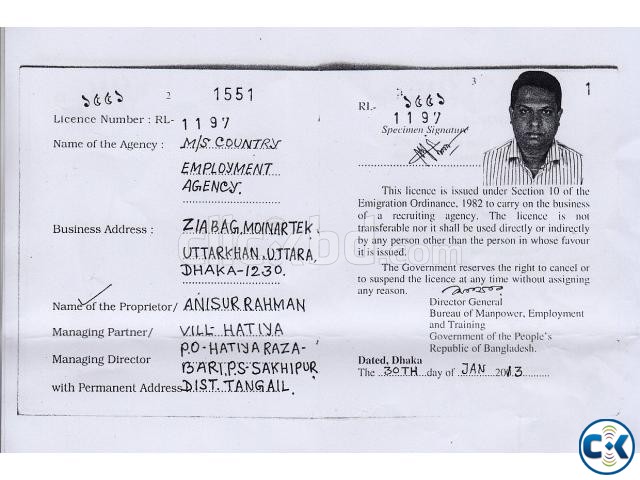 ১৫৫১ 2 1551
Licence Number : RL- 1197
Name of the Agency : M/S COUNTRY
EMPLOYMENT
AGENCY.
Business Address : ZIABAG, MOINARTEK.
UTTARKHAN, UTTARA,
DHAKA-1230.
Name of the Proprietor/ ANISUR RAHMAN
Managing Partner/ VILL- HATIYA
Managing Director P.O-HATIYA RAZA-
BARI, P.S-SAKHIPUR
with Permanent Address DIST. TANGAIL.
3
1
RL- ১৫৫১
1197
Specimen Signature
This licence is issued under Section 10 of the
Emigration Ordinance, 1982 to carry on the business
of a recruiting agency. The licence is not
transferable nor it shall be used directly or indirectly
by any person other than the person in whose favour
it is issued.
The Government reserves the right to cancel or
to suspend the licence at any time without assigning
any reason.
Director General
Bureau of Manpower, Employment
and Training
Government of the People's
Republic of Bangladesh.
Dated, Dhaka
The 30TH day of JAN 2013
clickbd.com
CK